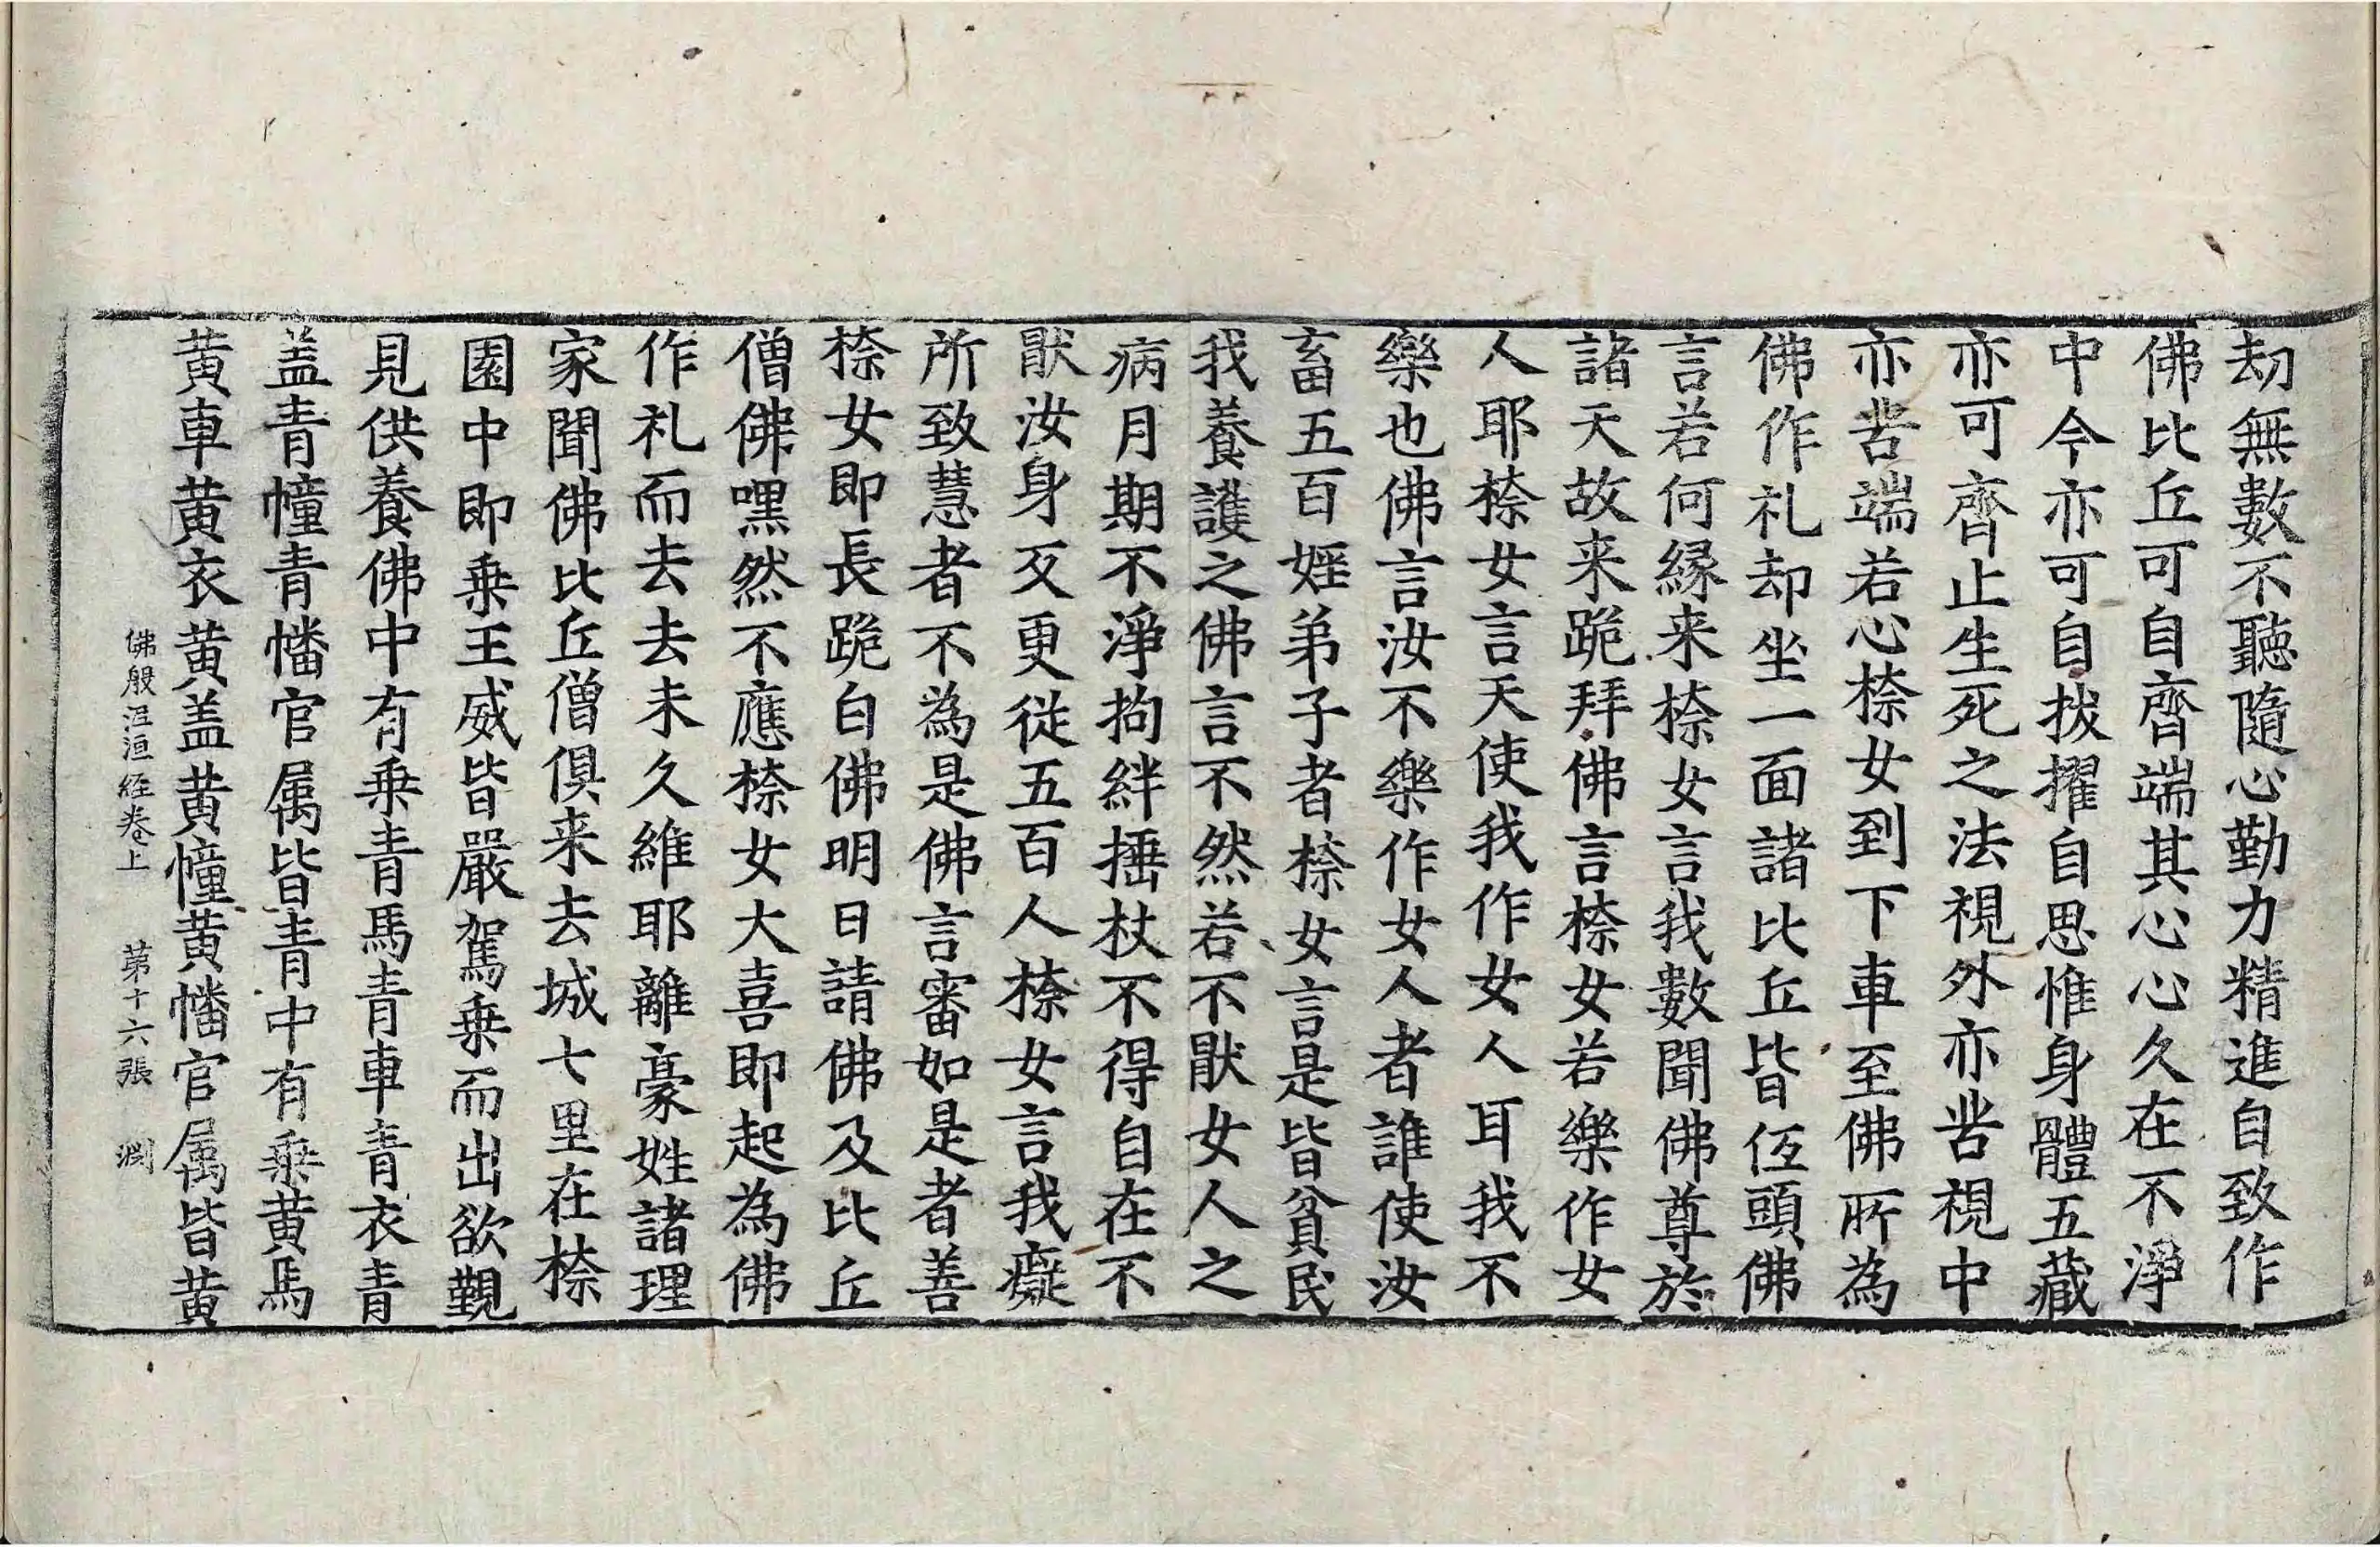 劫無數不聽隨心勤力精進自致作
佛比丘可自齊端其心心久在不淨
中今亦可自拔擢自思惟身體五藏
亦可齊止生死之法視外亦苦視中
亦苦端若心㮈女到下車至佛所為
佛作礼却坐一面諸比丘皆低頭佛
言若何縁来㮈女言我數聞佛尊於
諸天故来跪拜佛言㮈女若樂作女
人耶㮈女言天使我作女人耳我不
樂也佛言汝不樂作女人者誰使汝
畜五百婬弟子者㮈女言是皆貧民
我養護之佛言不然若不猒女人之
病月期不淨拘絆捶杖不得自在不
猒汝身反更從五百人㮈女言我癡
所致慧者不為是佛言審如是者善
㮈女即長跪白佛明日請佛及比丘
僧佛嘿然不應㮈女大喜即起為佛
作礼而去去未久維耶離豪姓諸理
家聞佛比丘僧俱来去城七里在㮈
園中即乗王威皆嚴駕乗而出欲覲
見供養佛中有乗青馬青車青衣青
盖青幢青幡官属皆青中有乗黄馬
黄車黄衣黄盖黄幢黄幡官属皆黄
佛般泥洹経卷上 第十六張 渕